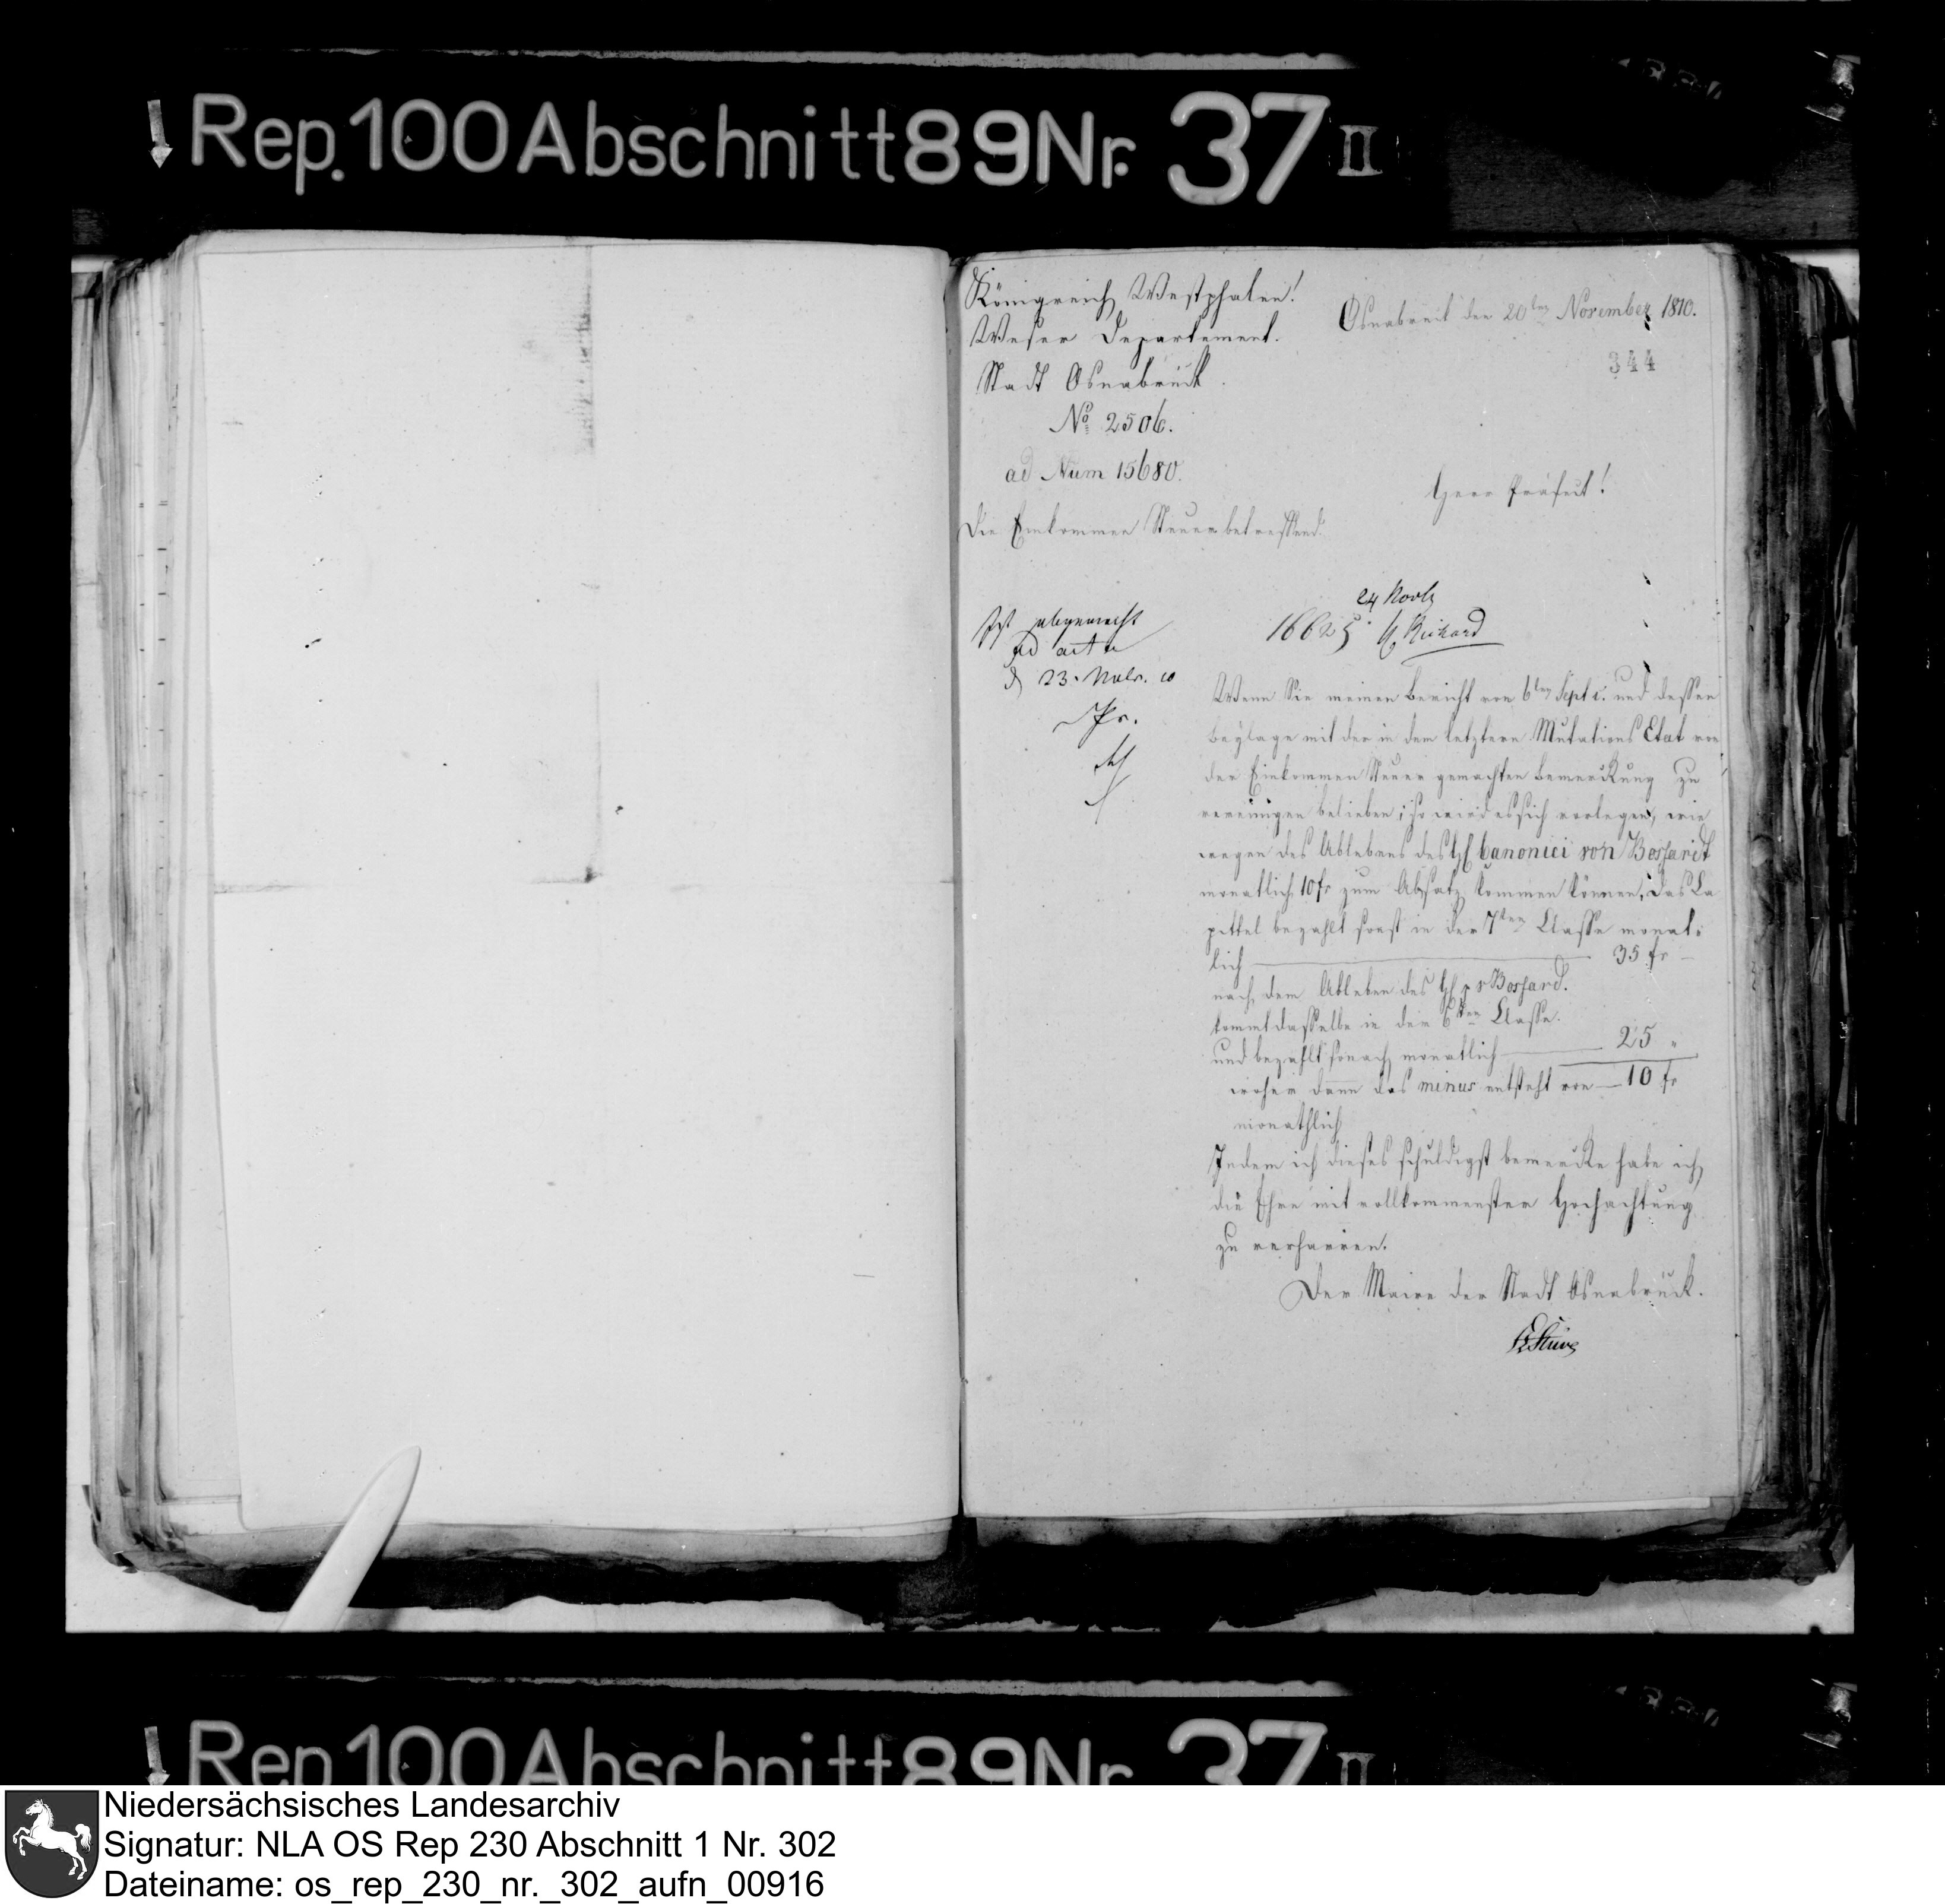 Rep. 100 Abschnitt 89 Nr. 37 II
Königreich Westphalen!
Weser Departement.
Stadt Osnabrück.
No 2506.
ad Num 15680.
Die Einkommen Steuer betreffend.
Osnabrück den 20ten November 1810.
344
Herr Präfect!
24 Novbr
16625
Ist abgemacht
ad acta
d 23. Nvbr. 10
Wenn Sie meinen Bericht vom 6ten Sept c. und dessen
Beylage mit der in dem letztern Mutations Etat von
der Einkommen Steuer gemachten Bemerkung zu
vereinigen belieben; so wird es sich vorlegen, wie
wegen des Ablebens des H Canonici von Bossard
monatlich 10 fr zum Absatz kommen können. Das Ca
pittel bezahlt sonst in der 7ten Classe monat:
lich 35 fr
nach dem Ableben des H v Bossard.
kommt dasselbe in der 6ten Classe.
und bezahlt sonach monatlich 25 "
woher dann das minus entsteht von 10 fr
monathlich
Indem ich dieses schuldigst bemercke habe ich
die Ehre mit vollkommenster Hochachtung
zu verharren.
Der Maire der Stadt Osnabrück.
Stüve
Rep. 100 Abschnitt 89 Nr. 37 II
Niedersächsisches Landesarchiv
Signatur: NLA OS Rep 230 Abschnitt 1 Nr. 302
Dateiname: os_rep_230_nr._302_aufn_00916